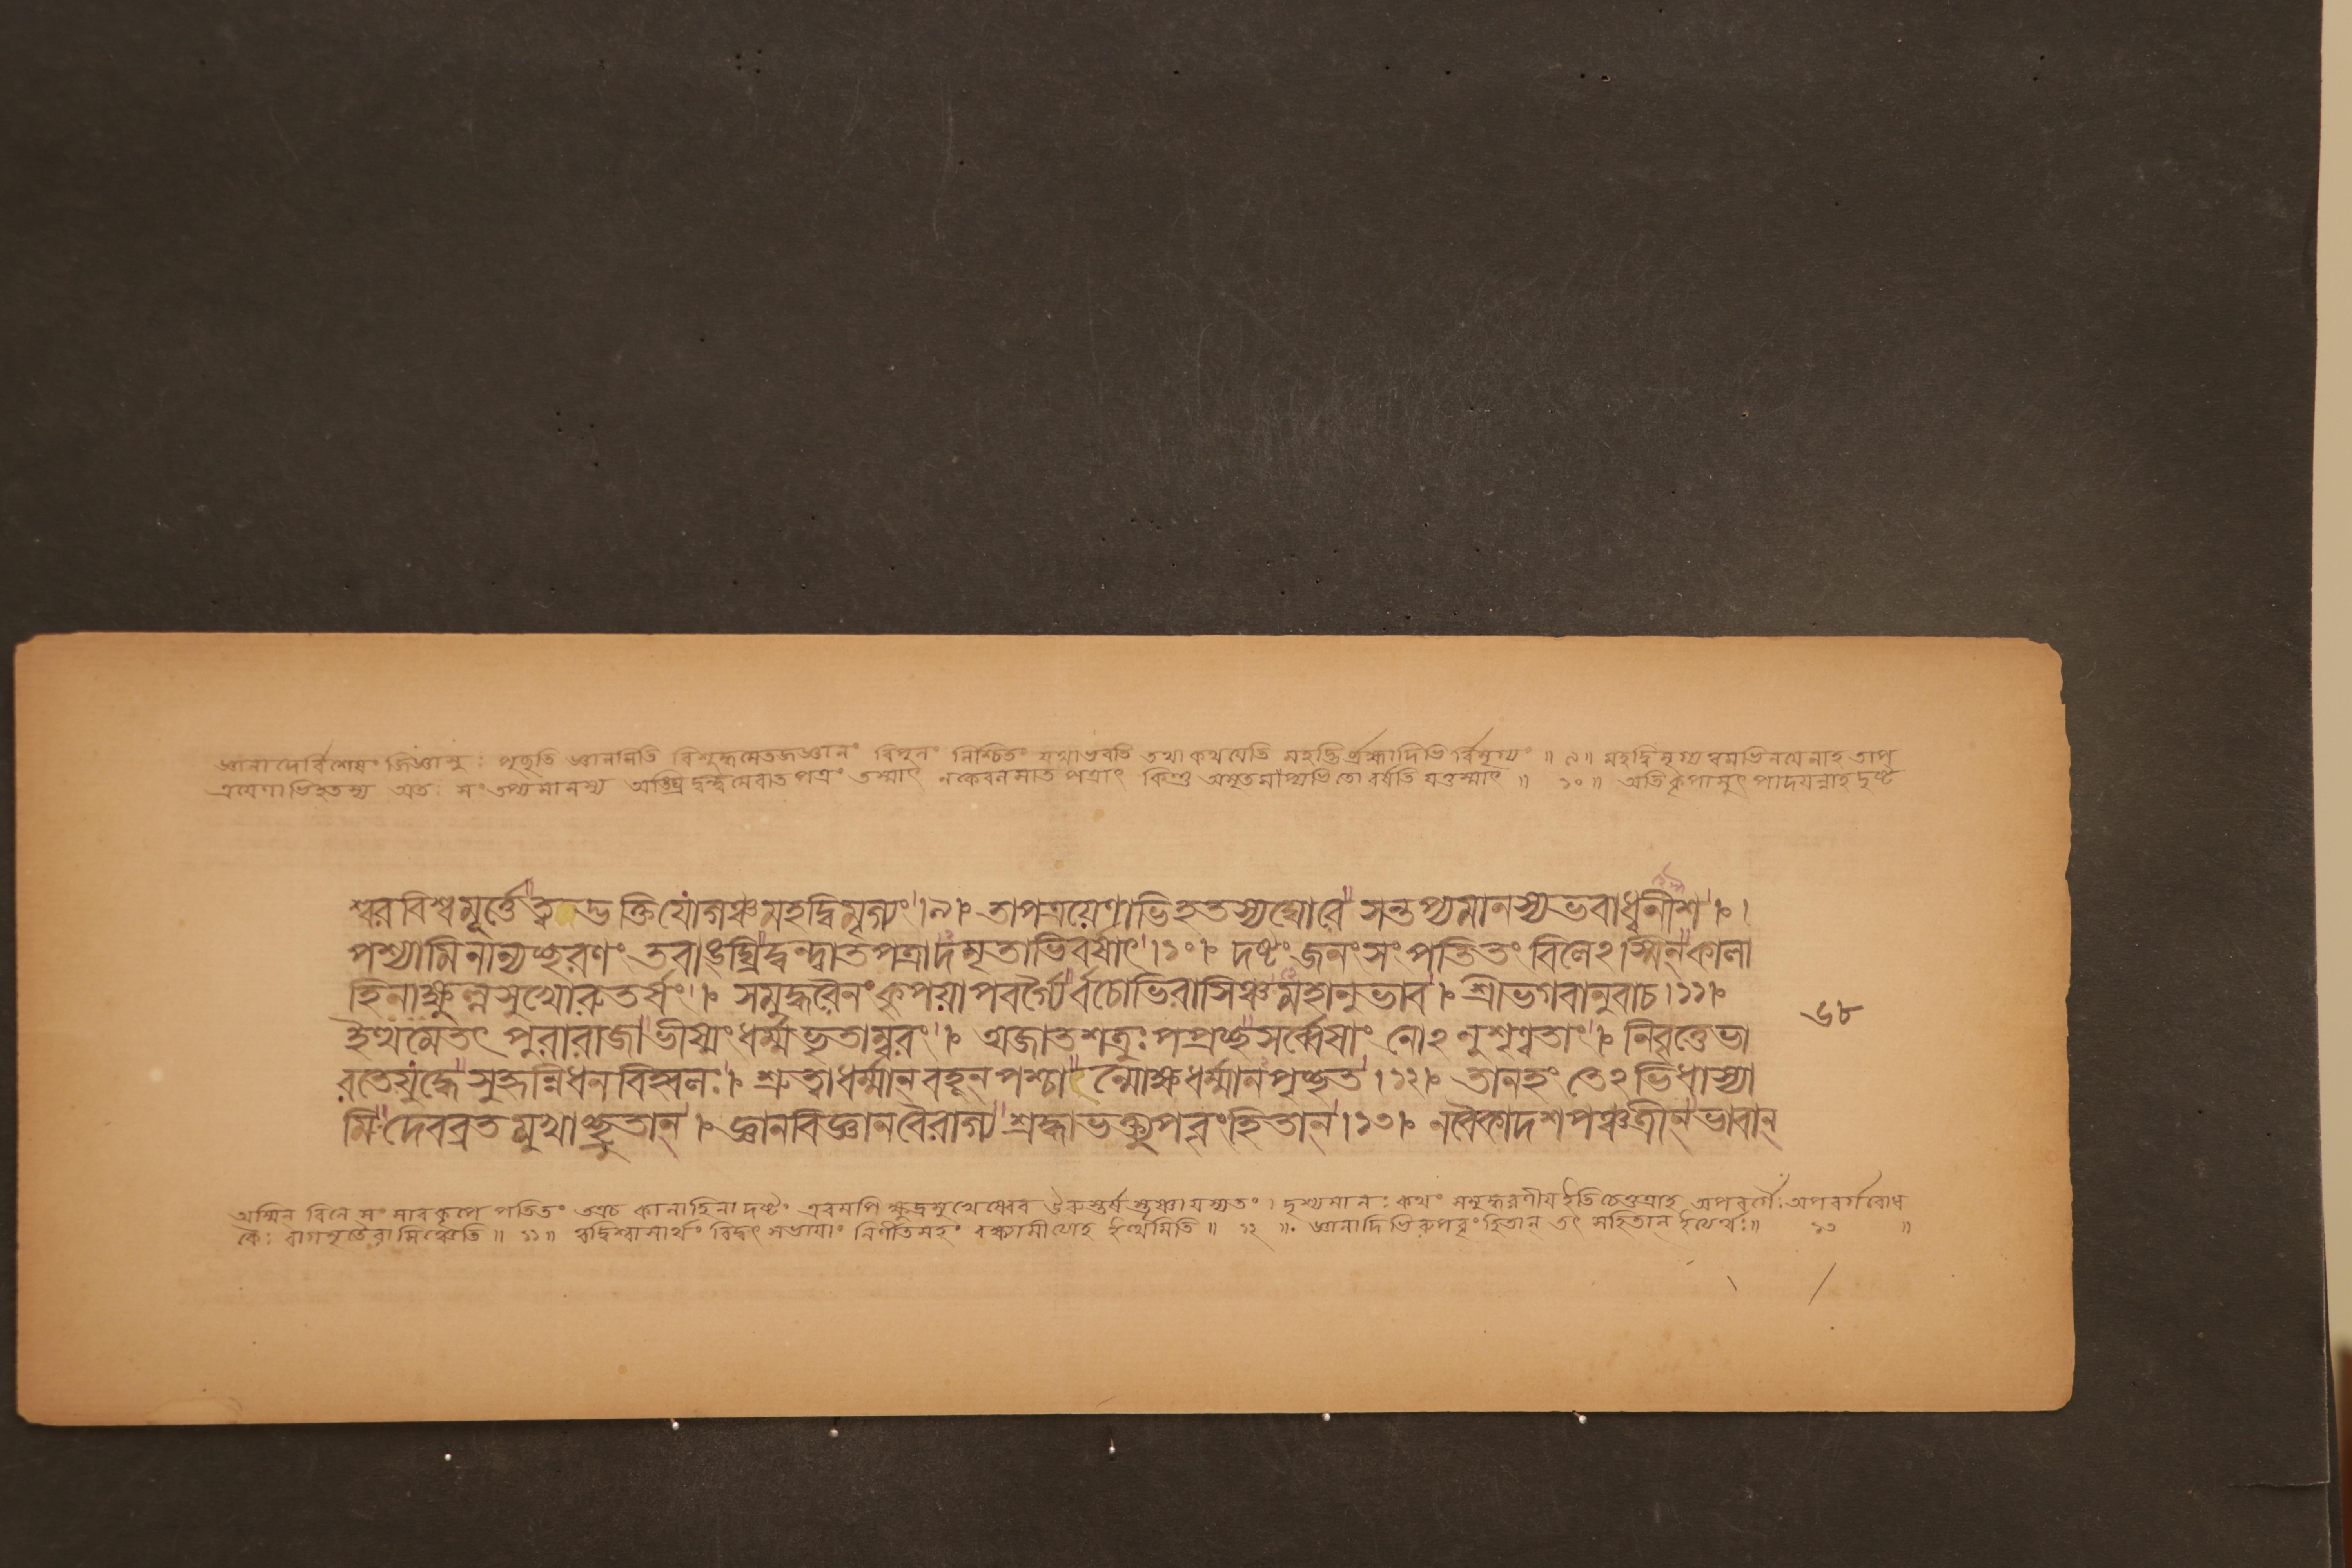 জ্ঞানাদের্বিশেষং জিজ্ঞাসুঃ পৃছতি জ্ঞানমিতি বিশুদ্ধমেতজ্জ্ঞানং বিপুলং নিশ্চিতং যথাভবতি তথা কথযেতি মহদ্ভির্ব্রহ্মাদিভি র্বিমৃগ্যং ॥ ৯॥ মহদ্বিমৃগ্যত্বমভিনযেনাহ তাপ
ত্রযেণাভিহতস্য অতঃ সংতপ্যমানস্য অঙ্ঘ্রিদ্বন্দ্বমেবাতপত্রং তস্মাৎ নকেবলমাতপত্রাৎ কিন্তু অমৃতমাপ্যভিতো বর্ষতি যত্তস্মাৎ ॥ ১০॥ অতিকৃপামুৎপাদযন্নাহ দৃষ্ট
শ্বরবিশ্বমূর্ত্তে ত্বদ্ভক্তিযোগঞ্চমহদ্বিমৃগ্যং।৯।০ তাপত্রয়েণাভিহতস্যঘোরে সন্তপ্যমানস্যভবাধ্বনীশ।০।
পশ্যামিনান্যচ্ছরণং তবাঙ্ঘ্রিদ্বন্দ্বাতপত্রাদমৃতাভিবর্ষাৎ।১০।০ দষ্টংজনংসংপতিতং বিলেঽস্মিন্কালা
হিনাক্ষুল্লসুখোরুতর্ষং।০ সমুদ্ধরৈনংকৃপয়াপবর্গ্যৈর্বচোভিরাসিঞ্চমহানুভাব।০ শ্রীভগবানুবাচ।১১।০
ইত্থমেতৎ পুরারাজাভীষ্মংধর্ম্মভৃতাম্বরং।০ অজাতশত্রুঃপপ্রচ্ছসর্ব্বেষাং নোঽনুশৃণ্বতাং।০ নিবৃত্তেভা
রতেযুদ্ধে সুহৃন্নিধনবিহ্বলঃ।০ শ্রুত্বাধর্ম্মান্বহূন্পশ্চান্মোক্ষধর্ম্মানপৃচ্ছত।১২।০ তানহং তেঽভিধাস্যা
মি দেবব্রতমুখাচ্ছ্রুতান্।০ জ্ঞানবিজ্ঞানবৈরাগ্যশ্রদ্ধাভক্ত্যুপবৃংহিতান্।১৩।০ নবৈকাদশপঞ্চত্রীন্ভাবান্
৬৮
অস্মিন বিলে সংসারকূপে পতিতং তত্রচ কালাহিনাদষ্টং এবমপি ক্ষুদ্রসুখেষ্বেব উরুস্তর্ষস্তৃষ্ণাযস্যতং। দৃশ্যমানঃ কথং সমুদ্ধরণীয ইতি চেত্তত্রাহ অপবর্গ্যৈঃ অপবর্গবোধ
কৈঃ বাগমৃতৈরাসিঞ্চেতি ॥ ১১॥ ত্বদ্বিশ্বাসার্থং বিদ্বৎসভাযাং নির্ণীতমহং বক্ষ্যামীত্যাহ ইত্থমিতি ॥ ১২ ॥ জ্ঞানাদিভিরুপবৃংহিতান্ তৎ সহিতান্ ইত্যর্থঃ॥ ১৩ ॥